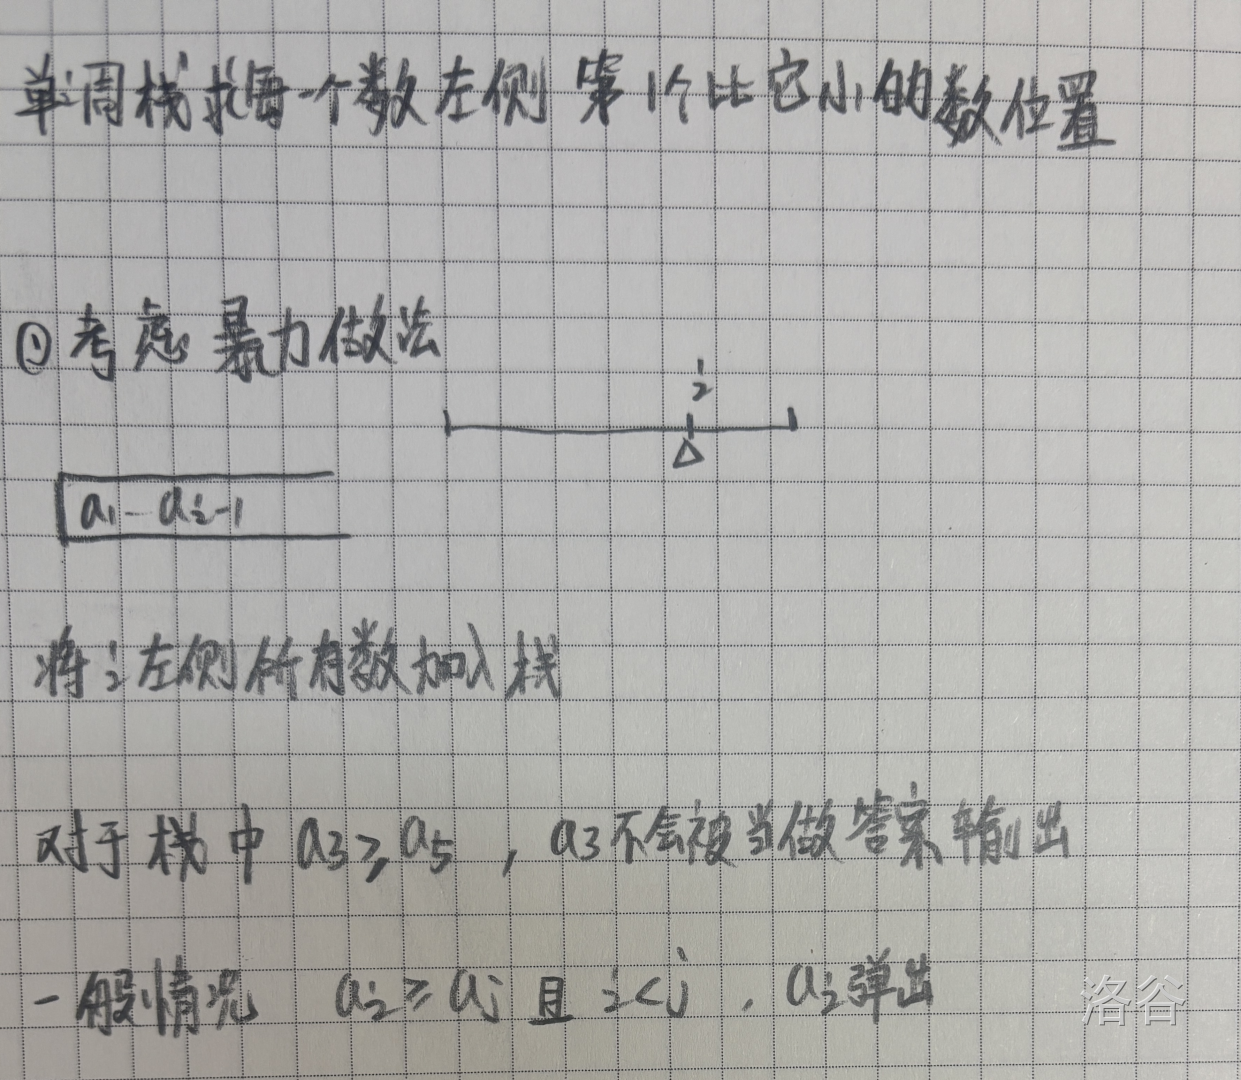 单周栈求每一个数左侧第1个比它小的数位置
①考虑暴力做法
i
a1 - ai-1
将i左侧所有数加入栈
对于栈中 a3≥a5 , a3不会被当做答案输出
一般情况 ai≥aj 且 i<j , ai弹出
洛谷